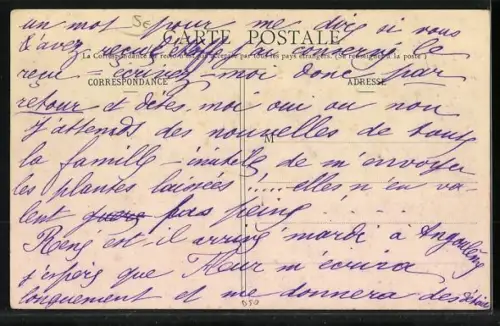 un mot pour me dire si vous
5€
CARTE POSTALE
l'avez reçu j'ai conservé le
La Correspondance au recto n'est pas acceptée par tous les pays étrangers. (Se renseigner à la poste)
reçu - écrivez-moi donc par
CORRESPONDANCE
ADRESSE
retour et dites moi oui ou non
J'attends des nouvelles de toute
M
la famille - inutile de m'envoyer
les plantes laissées !..... elles n'en va-
lent pas peine
René est-il arrivé mardi à Angoulême
j'espère que Fleur m'écrira
longuement et me donnera des détails